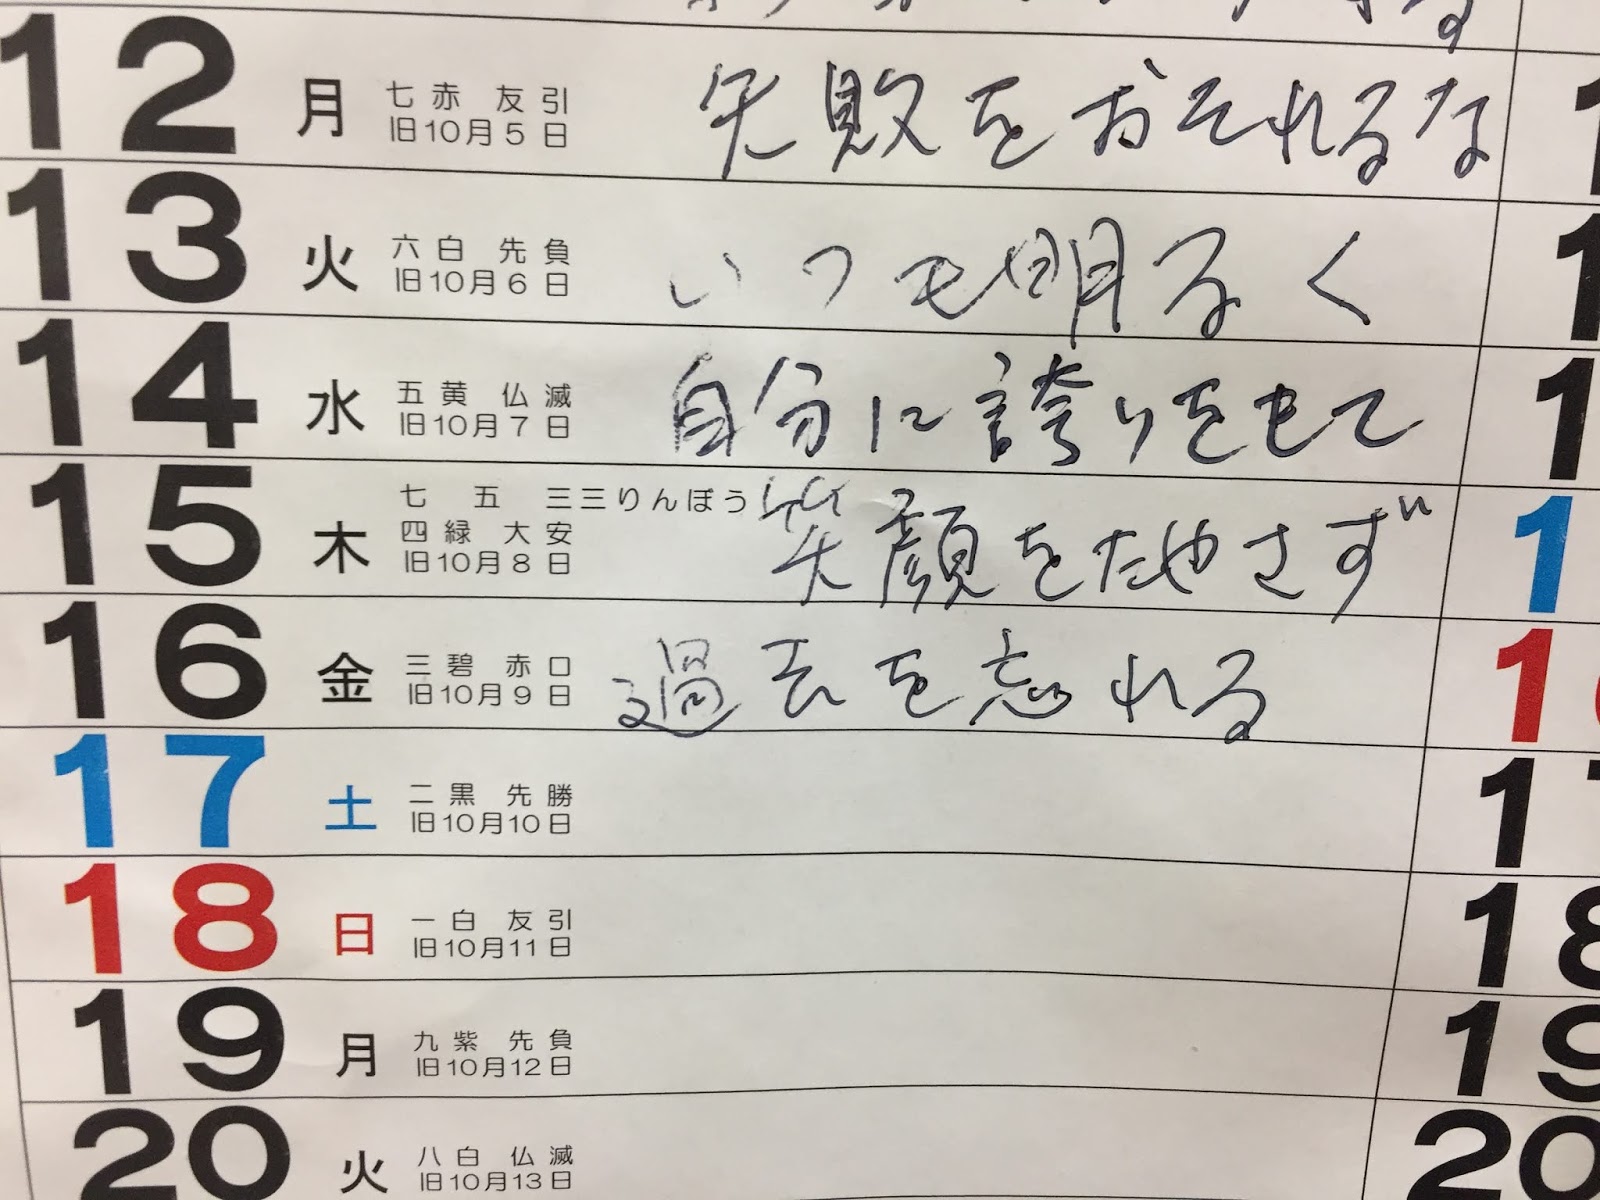 12 月 七赤 友引 失敗をおそれるな
旧10月5日
13 火 六白 先負 いつも明るく
旧10月6日
14 水 五黄 仏滅 自分に誇りをもて
旧10月7日
七五三 三りんぼう
15 木 四緑 大安 笑顔をたやさず
旧10月8日
16 金 三碧 赤口 過去を忘れる
旧10月9日
17 土 二黒 先勝 17
旧10月10日
18 日 一白 友引 18
旧10月11日
19 月 九紫 先負 19
旧10月12日
20 火 八白 仏滅 20
旧10月13日